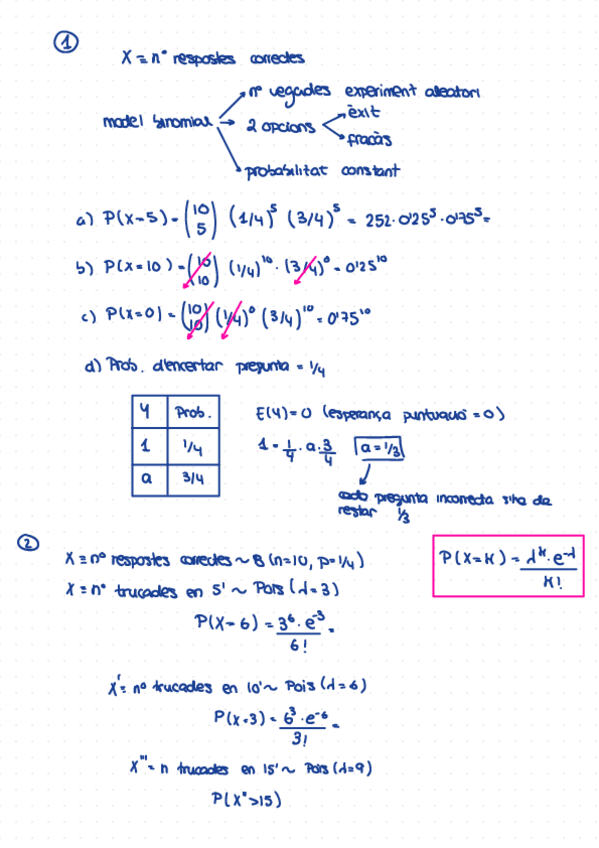 1
X = nº respostes correctes
nº vegades experiment aleatori
model binomial → 2 opcions
èxit
fracàs
probabilitat constant
a) P(X=5) = (10 5) (1/4)⁵ (3/4)⁵ = 252·0'25⁵·0'75⁵=
b) P(X=10) = (10 10) (1/4)¹⁰ · (3/4)⁰ = 0'25¹⁰
c) P(X=0) = (10 10) (1/4)⁰ (3/4)¹⁰ = 0'75¹⁰
d) Prob. d'encertar pregunta = 1/4
Y Prob.
1 1/4
a 3/4
E(Y)=0 (esperança puntuació = 0)
1 · 1/4 · a · 3/4 a = 1/3
cada pregunta incorrecta s'ha de
restar 1/3
2
X ≡ nº respostes correctes ~ B (n=10, p=1/4)
X = nº trucades en 5' ~ Pois (λ=3)
P(X=K) = λᴷ · e⁻λ / K!
P(X=6) = 3⁶ · e⁻³ / 6! =
X' = nº trucades en 10' ~ Pois (λ=6)
P(X=3) = 6³ · e⁻⁶ / 3! =
X''' = n trucades en 15' ~ Pois (λ=9)
P(X''>15)